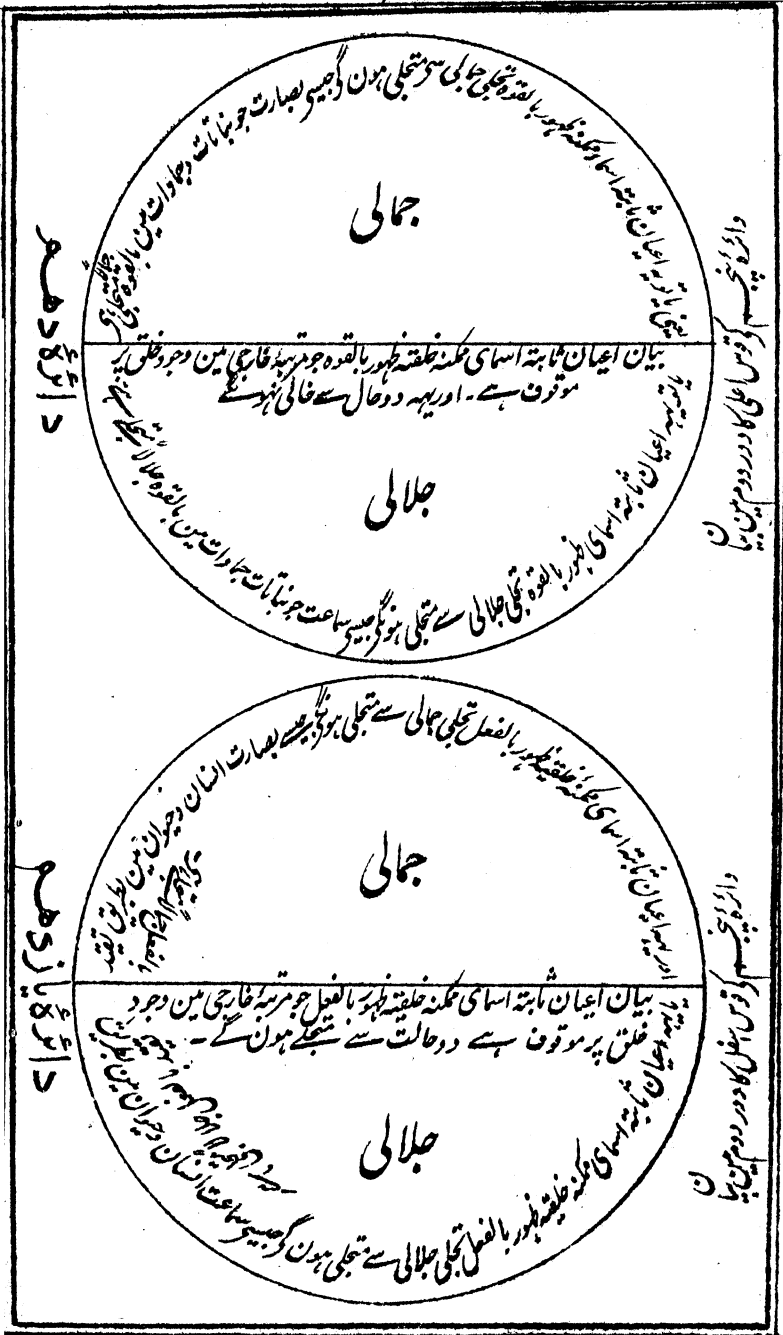 دائرہ پنجم کی قوس اعلی کا دور دوم مین بیان
دائرۂ دھم
یعنی یا تو یہ اعیان ثابتہ اسماء ممکنہ ظہور بالقوہ تجلی جمالی سی متجلی ہون گی جیسی بصارت جو نباتات و جمادات مین بالقوہ
جمالی
بیان اعیان ثابتہ اسمای ممکنہ خلقتہ ظہور بالقوہ جو مرتبۂ خارجی مین وجود خلق پر
موقوف ہے۔ اور یہہ دو حال سے خالی نہونگے
جلالی
یا تو یہہ اعیان ثابتہ اسمای ظہور بالقوہ تجلی جلالی سے متجلی ہونگی جیسی سماعت جو نباتات جمادات مین بالقوہ جلالاً متجلی
دائرہ پنجم کی قوس اسفل کا دور دوم مین بیان
دائرۂ یازدھم
اور یہہ اعیان ثابتہ اسمای ممکنہ خلقیہ ظہور بالفعل تجلی جمالی سے متجلی ہونگی جیسے بصارت انسان و حیوان مین بطریق تقید
جمالی
بیان اعیان ثابتہ اسمای ممکنہ خلیقتہ ظہور بالفعل جو مرتبۂ خارجی مین وجود
خلق پر موقوف ہے دو حالت سے متجلے ہون گے۔
جلالی
یا یہہ اعیان ثابتہ اسمای ممکنہ خلیقتہ ظہور بالفعل تجلی جلالی سے متجلی ہون گی جیسی سماعت انسان و حیوان مین بطریق